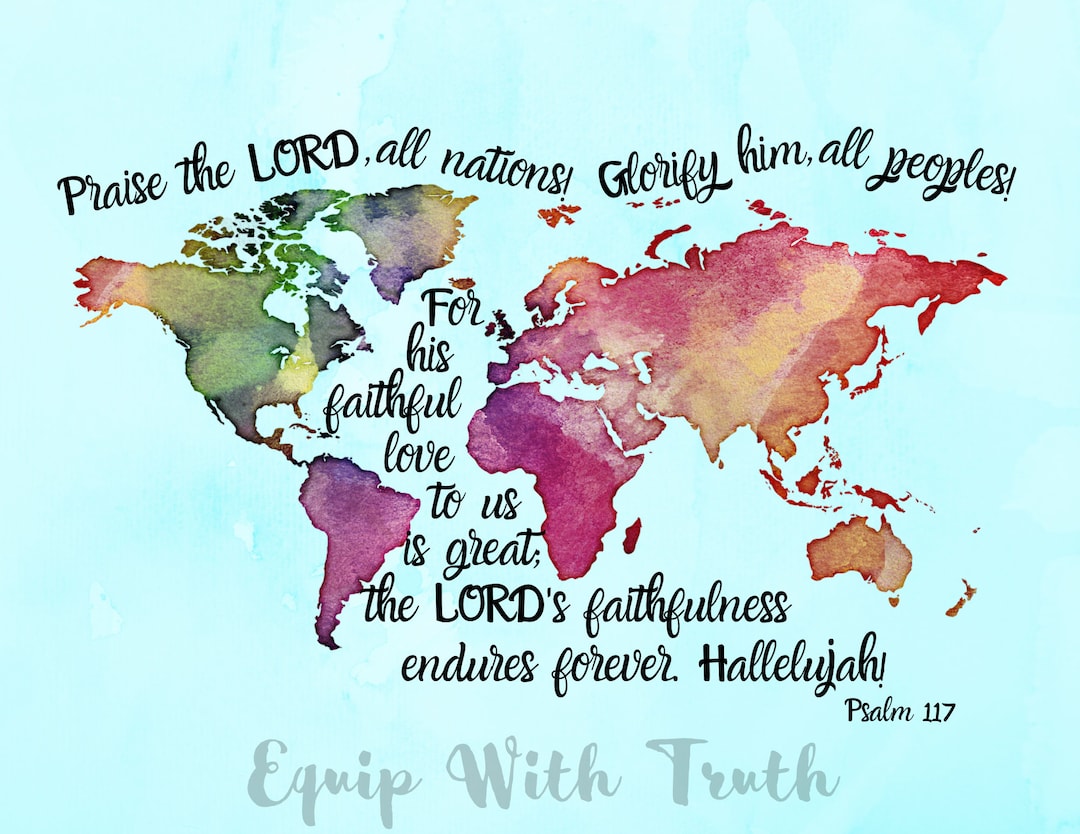 Praise the LORD, all nations! Glorify him, all peoples!
For
his
faithful
love
to us
is great;
the LORD's faithfulness
endures forever. Hallelujah!
Psalm 117
Equip With Truth